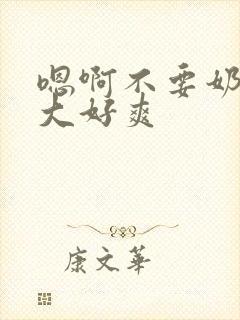 嗯啊不要奶
大好爽
康文华